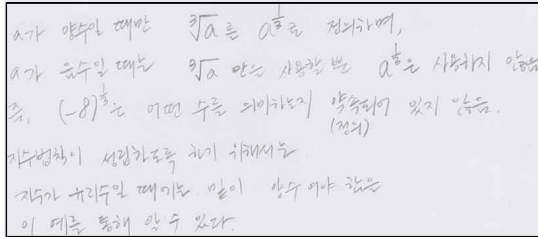 a가 양수일 때만 ∛a를 a^{1/3}로 정의하며,
a가 음수일 때는 ∛a 만을 사용할 뿐 a^{1/3}은 사용하지 않음
즉, (-8)^{1/3}은 어떤 수를 의미하는지 약속되어 있지 않음.
(정의)
지수법칙이 성립하도록 하기 위해서는
지수가 유리수일 때에는 밑이 양수여야 함은
이 예를 통해 알 수 있다.